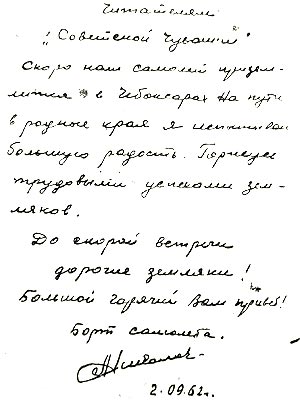 Читателям
"Советской Чувашии"
Скоро наш самолет призем-
лится в Чебоксарах На пути
в родные края я испытываю
большую радость. Горжусь
трудовыми успехами зем-
ляков.
До скорой встречи
дорогие земляки!
Большой горячий Вам привет!
Борт самолета.
2.09.62г.